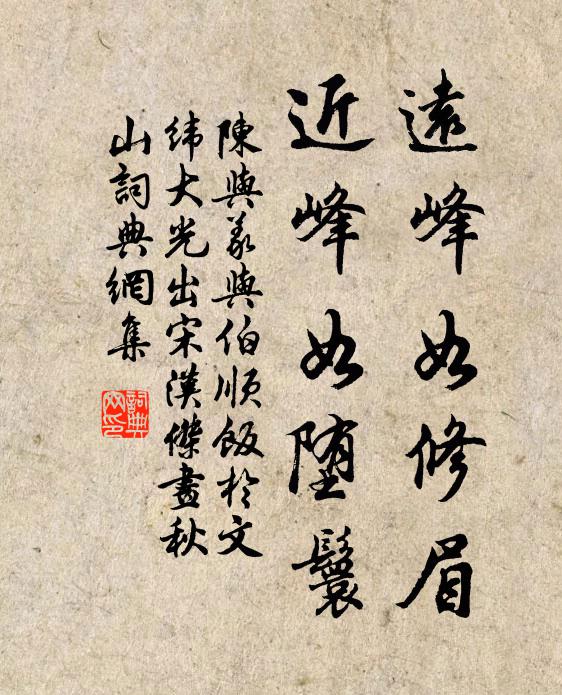 遠峰如修眉
近峰如堕鬟
陳與義與伯順飯於文
緯大光出宋漢傑畫秋
山詞典網集
詞典
网印